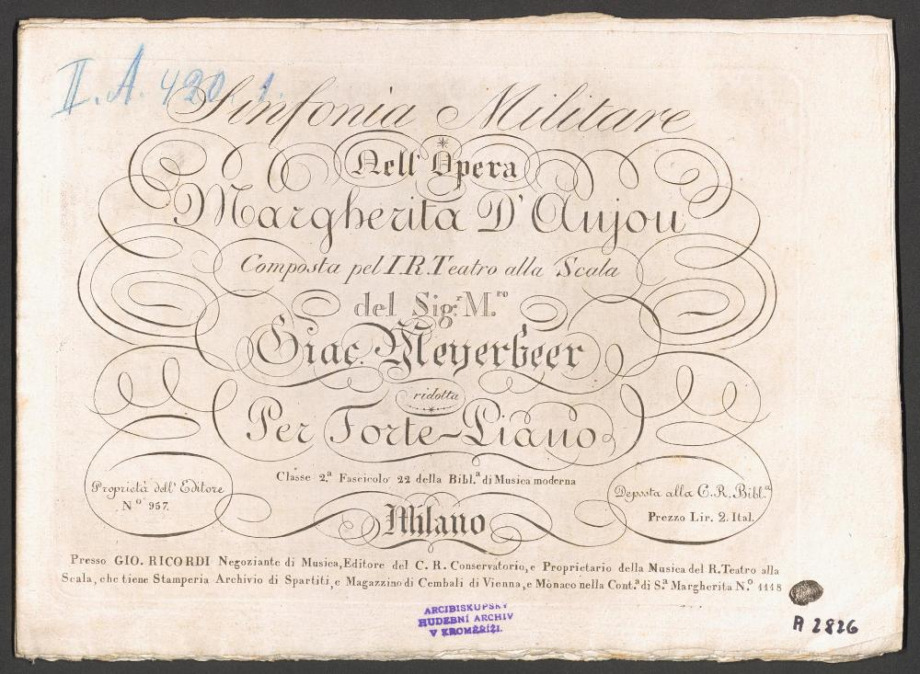 II. A. 420. 1.
Sinfonia Militare
Nell' Opera
Margherita D'Anjou
Composta pel I. R. Teatro alla Scala
del Sig.r M.ro
Giac. Meyerbeer
ridotta
Per Forte-Piano
Classe 2.a Fascicolo 22 della Bibl.a di Musica moderna
Proprietà dell' Editore
N.o 957.
Deposta alla C. R. Bibl.a
Prezzo Lir. 2. Ital.
Milano
Presso GIO. RICORDI Negoziante di Musica, Editore del C. R. Conservatorio, e Proprietario della Musica del R. Teatro alla
Scala, che tiene Stamperia Archivio di Spartiti, e Magazzino di Cembali di Vienna, e Monaco nella Cont.a di S.a Margherita N.o 1118
ARCIBISKUPSKÝ
HUDEBNÍ ARCHIV
V KROMĚŘÍŽI.
A 2826